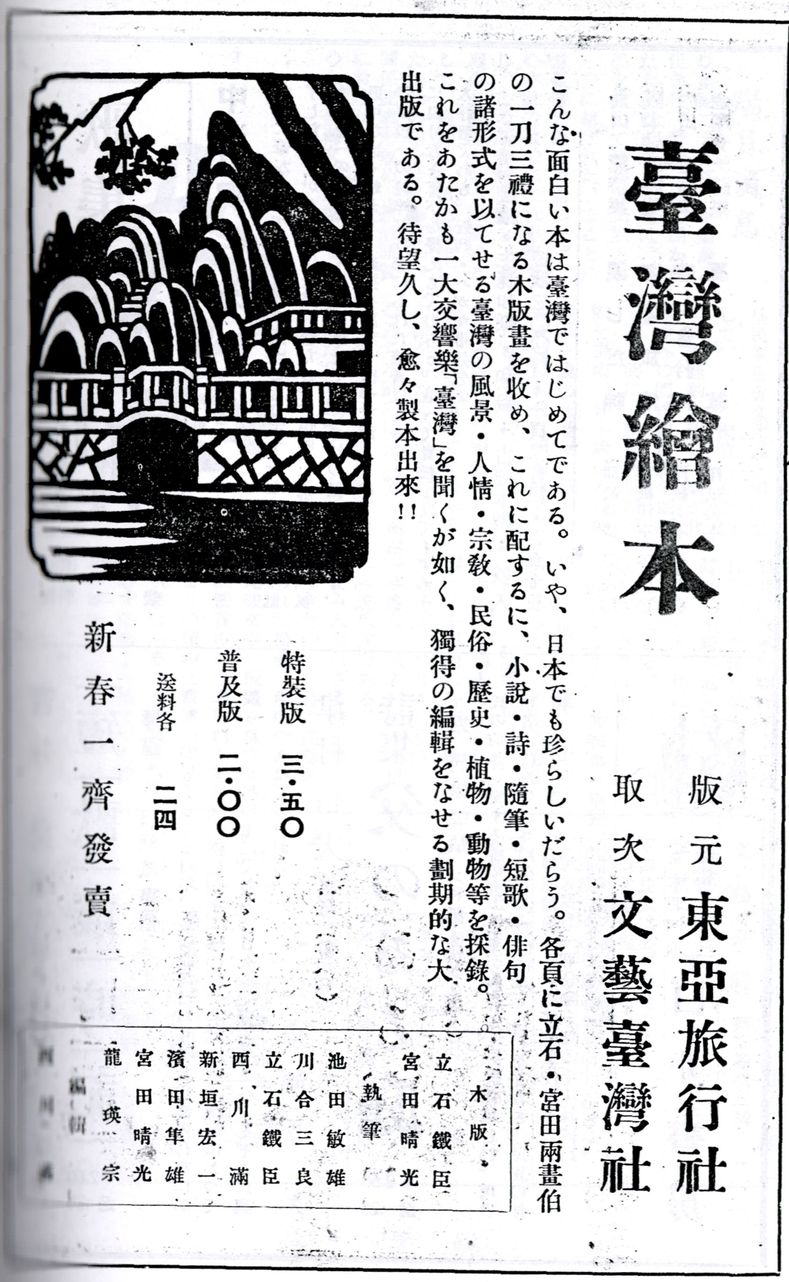 臺灣繪本
版元 東亞旅行社
取次 文藝臺灣社
こんな面白い本は臺灣ではじめてである。いや、日本でも珍らしいだらう。各頁に立石・宮田兩畫伯
の一刀三禮になる木版畫を收め、これに配するに、小說・詩・隨筆・短歌・俳句
の諸形式を以てせる臺灣の風景・人情・宗敎・民俗・歷史・植物・動物等を採錄。
これをあたかも一大交響樂「臺灣」を聞くが如く、獨得の編輯をなせる劃期的な大
出版である。待望久し、愈々製本出來!!
特裝版 三・五〇
普及版 二・〇〇
送料各 二四
新春一齊發賣
木版
立石鐵臣
宮田晴光
執筆
池田敏雄
川合三良
立石鐵臣
西川滿
新垣宏一
濱田隼雄
宮田晴光
龍瑛宗
編輯
西川滿